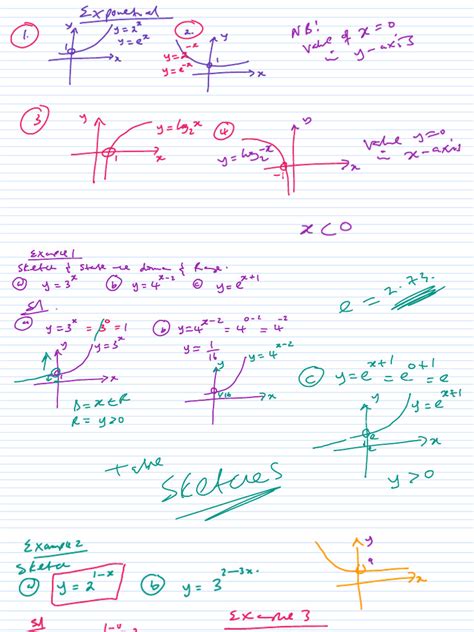 Exponential
1. y = 2^x
y = e^x
1
x
y
2. y = 2^-x
y = e^-x
1
x
y
NB!
Value of x = 0
in y-axis
3
y
y = log₂x
1
x
4
y
y = log₂^-x
-1
x
Value y = 0
in x-axis
x < 0
Example 1
Sketch & State the domain & Range.
a y = 3^x b y = 4^x-2 c y = e^x+1
e = 2.73.
Sol
a y = 3^x = 3^0 = 1
y
y = 3^x
1
x
D = x ∈ R
R = y > 0
b y = 4^x-2 = 4^0-2 = 4^-2
y = 1/16
y
y = 4^x-2
1/16
x
c y = e^x+1 = e^0+1 = e
y
y = e^x+1
e
x
y > 0
Take
Sketches
Example 2
Sketch
a y = 2^1-x b y = 3^2-3x.
y
x
Sol
Example 3